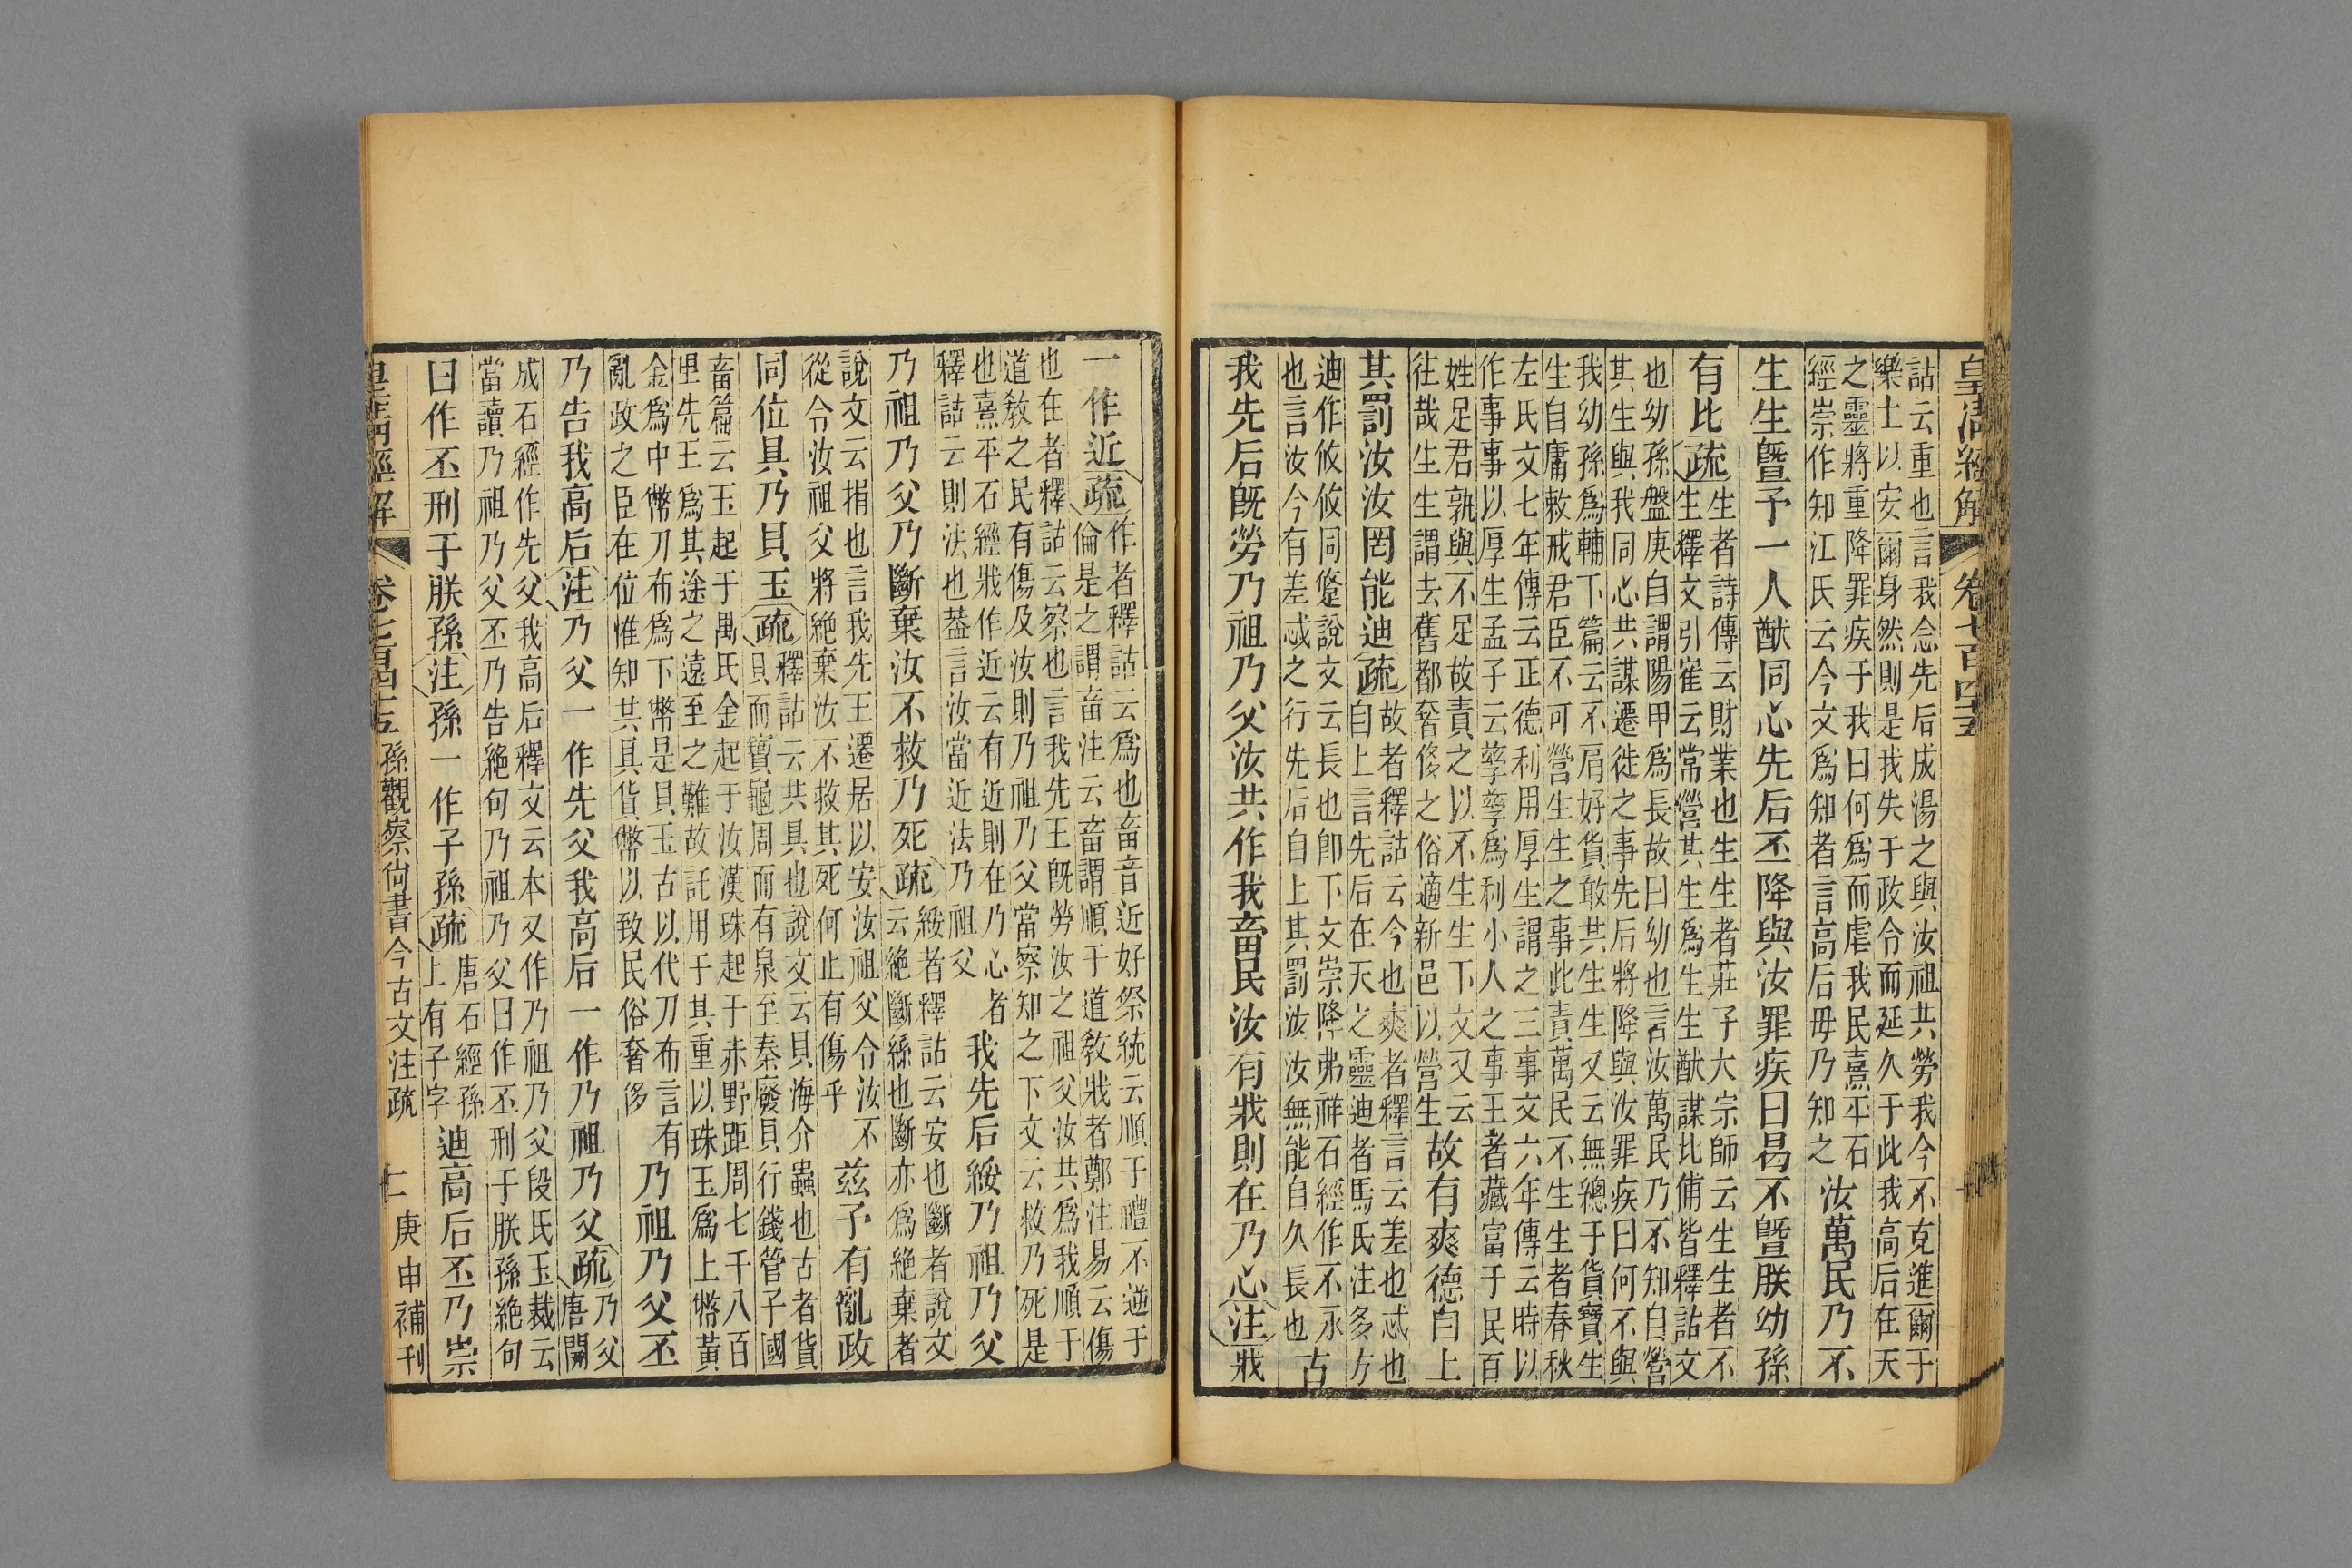 皇清經解 卷七百四十五
詁云重也言我念先后成湯之與汝祖共勞我今不克進爾于
樂土以安爾身然則是我失于政令而延久于此我高后在天
之靈將重降罪疾于我曰何爲而虐我民熹平石
經崇作知江氏云今文爲知者言高后毋乃知之
汝萬民乃不
生生曁予一人猷同心先后丕降與汝罪疾曰曷不曁朕幼孫
有比疏
生生者詩傳云財業也生生者莊子大宗師云生生者不
生釋文引崔云常營其生爲生生猷謀比俌皆釋詁文
也幼孫盤庚自謂陽甲爲長故曰幼也言汝萬民乃不知自營
其生與我同心共謀遷徙之事先后將降與汝罪疾曰何不與
我幼孫爲輔下篇云不肩好貨敢共生生又云無總于貨寶生
生自庸敕戒君臣不可營生生之事此責萬民不生生者春秋
左氏文七年傳云正德利用厚生謂之三事文六年傳云時以
作事事以厚生孟子云孳孳爲利小人之事王者藏富于民百
姓足君孰與不足故責之以不生生下文又云
往哉生生謂去舊都奢侈之俗適新邑以營生
故有爽德自上
其罰汝汝罔能迪疏
故者釋詁云今也爽者釋言云差也忒也
自上言先后在天之靈迪者馬氏注多方
迪作攸攸同悠說文云長也卽下文崇降弗祥石經作不永
也言汝今有差忒之行先后自上其罰汝汝無能自久長也
古
我先后旣勞乃祖乃父汝共作我畜民汝有戕則在乃心注戕
一作近疏
作者釋詁云爲也畜音近好祭統云順于禮不逆于
倫是之謂畜注云畜謂順于道敎戕者鄭注易云傷
也在者釋詁云察也言我先王旣勞汝之祖父汝共爲我順于
道敎之民有傷及汝則乃祖乃父當察知之下文云救乃死是
也熹平石經戕作近云有近則在乃心者
釋詁云則法也葢言汝當近法乃祖父
我先后綏乃祖乃父
乃祖乃父乃斷棄汝不救乃死疏
綏者釋詁云安也斷者說文
云絕斷絲也斷亦爲絕棄者
說文云捐也言我先王遷居以安汝祖父令汝不
從令汝祖父將絕棄汝不救其死何止有傷乎
茲予有亂政
同位具乃貝玉疏
釋詁云共具也說文云貝海介蟲也古者貨
貝而寶龜周而有泉至秦廢貝行錢管子國
畜篇云玉起于禺氏金起于汝漢珠起于赤野距周七千八百
里先王爲其途之遠至之難故託用于其重以珠玉爲上幣黃
金爲中幣刀布爲下幣是貝玉古以代刀布言有
亂政之臣在位惟知共具貨幣以致民俗奢侈
乃祖乃父丕
乃告我高后注乃父一作先父我高后一作乃祖乃父疏
乃父
唐開
成石經作先父我高后釋文云本又作乃祖乃父段氏玉裁云
當讀乃祖乃父丕乃告絕句乃祖乃父曰作丕刑于朕孫絕句
曰作丕刑于朕孫注孫一作子孫疏
唐石經孫
上有子字
迪高后丕乃崇
皇清經解 卷七百四十五 孫觀察尙書今古文注疏 庚申補刊